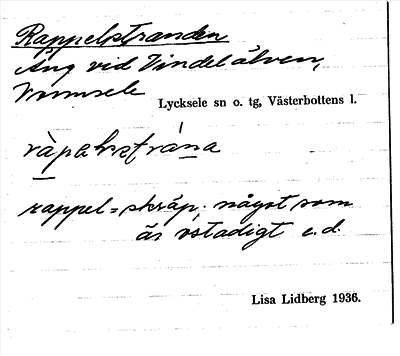 Rappelstranden
Äng vid Vindelälven,
Vormsele
Lycksele sn o. tg, Västerbottens l.
ràpəlsstrána
rappel = skräp, något som
är ostadigt e.d.
Lisa Lidberg 1936.